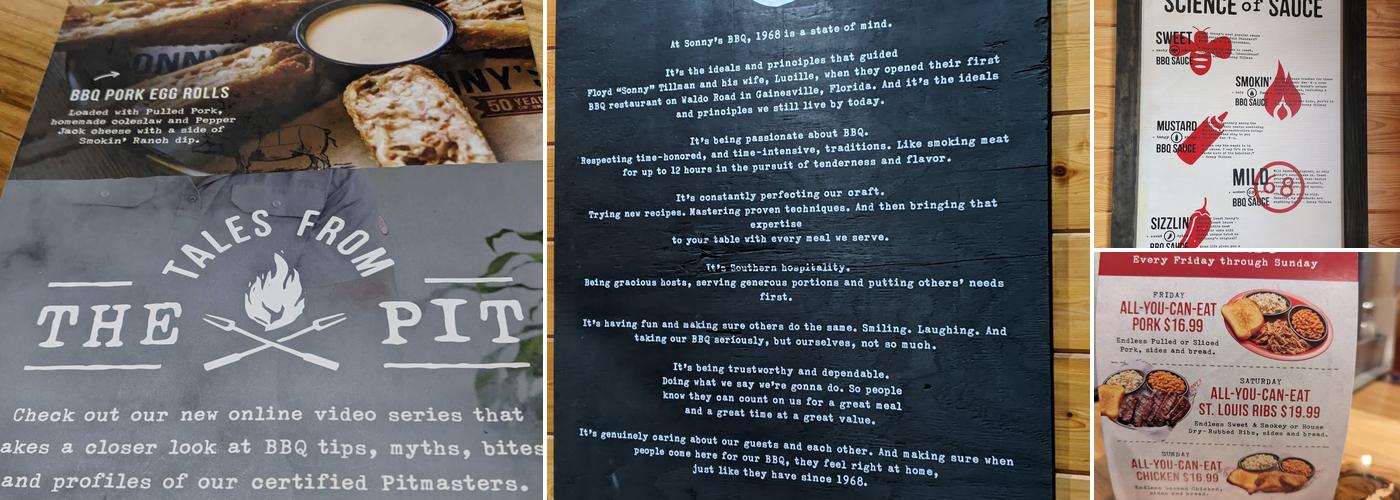 BBQ PORK EGG ROLLS
Loaded with Pulled Pork,
homemade coleslaw and Pepper
Jack cheese with a side of
Smokin' Ranch dip.
50 YEARS
TALES FROM
THE PIT
Check out our new online video series that
akes a closer look at BBQ tips, myths, bites
and profiles of our certified Pitmasters.
At Sonny's BBQ, 1968 is a state of mind.
It's the ideals and principles that guided
Floyd "Sonny" Tillman and his wife, Lucille, when they opened their first
BBQ restaurant on Waldo Road in Gainesville, Florida. And it's the ideals
and principles we still live by today.
It's being passionate about BBQ.
Respecting time-honored, and time-intensive, traditions. Like smoking meat
for up to 12 hours in the pursuit of tenderness and flavor.
It's constantly perfecting our craft.
Trying new recipes. Mastering proven techniques. And then bringing that
expertise
to your table with every meal we serve.
It's Southern hospitality.
Being gracious hosts, serving generous portions and putting others' needs
first.
It's having fun and making sure others do the same. Smiling. Laughing. And
taking our BBQ seriously, but ourselves, not so much.
It's being trustworthy and dependable.
Doing what we say we're gonna do. So people
know they can count on us for a great meal
and a great time at a great value.
It's genuinely caring about our guests and each other. And making sure when
people come here for our BBQ, they feel right at home,
just like they have since 1968.
SCIENCE of SAUCE
SWEET
BBQ SAUCE
SMOKIN'
BBQ SAUCE
MUSTARD
BBQ SAUCE
MILD
68
BBQ SAUCE
SIZZLIN'
BBQ SAUCE
Every Friday through Sunday
FRIDAY
ALL-YOU-CAN-EAT
PORK $16.99
Endless Pulled or Sliced
Pork, sides and bread.
SATURDAY
ALL-YOU-CAN-EAT
ST. LOUIS RIBS $19.99
Endless Sweet & Smokey or House
Dry-Rubbed Ribs, sides and bread.
SUNDAY
ALL-YOU-CAN-EAT
CHICKEN $16.99
Endless Chicken,
sides and bread.